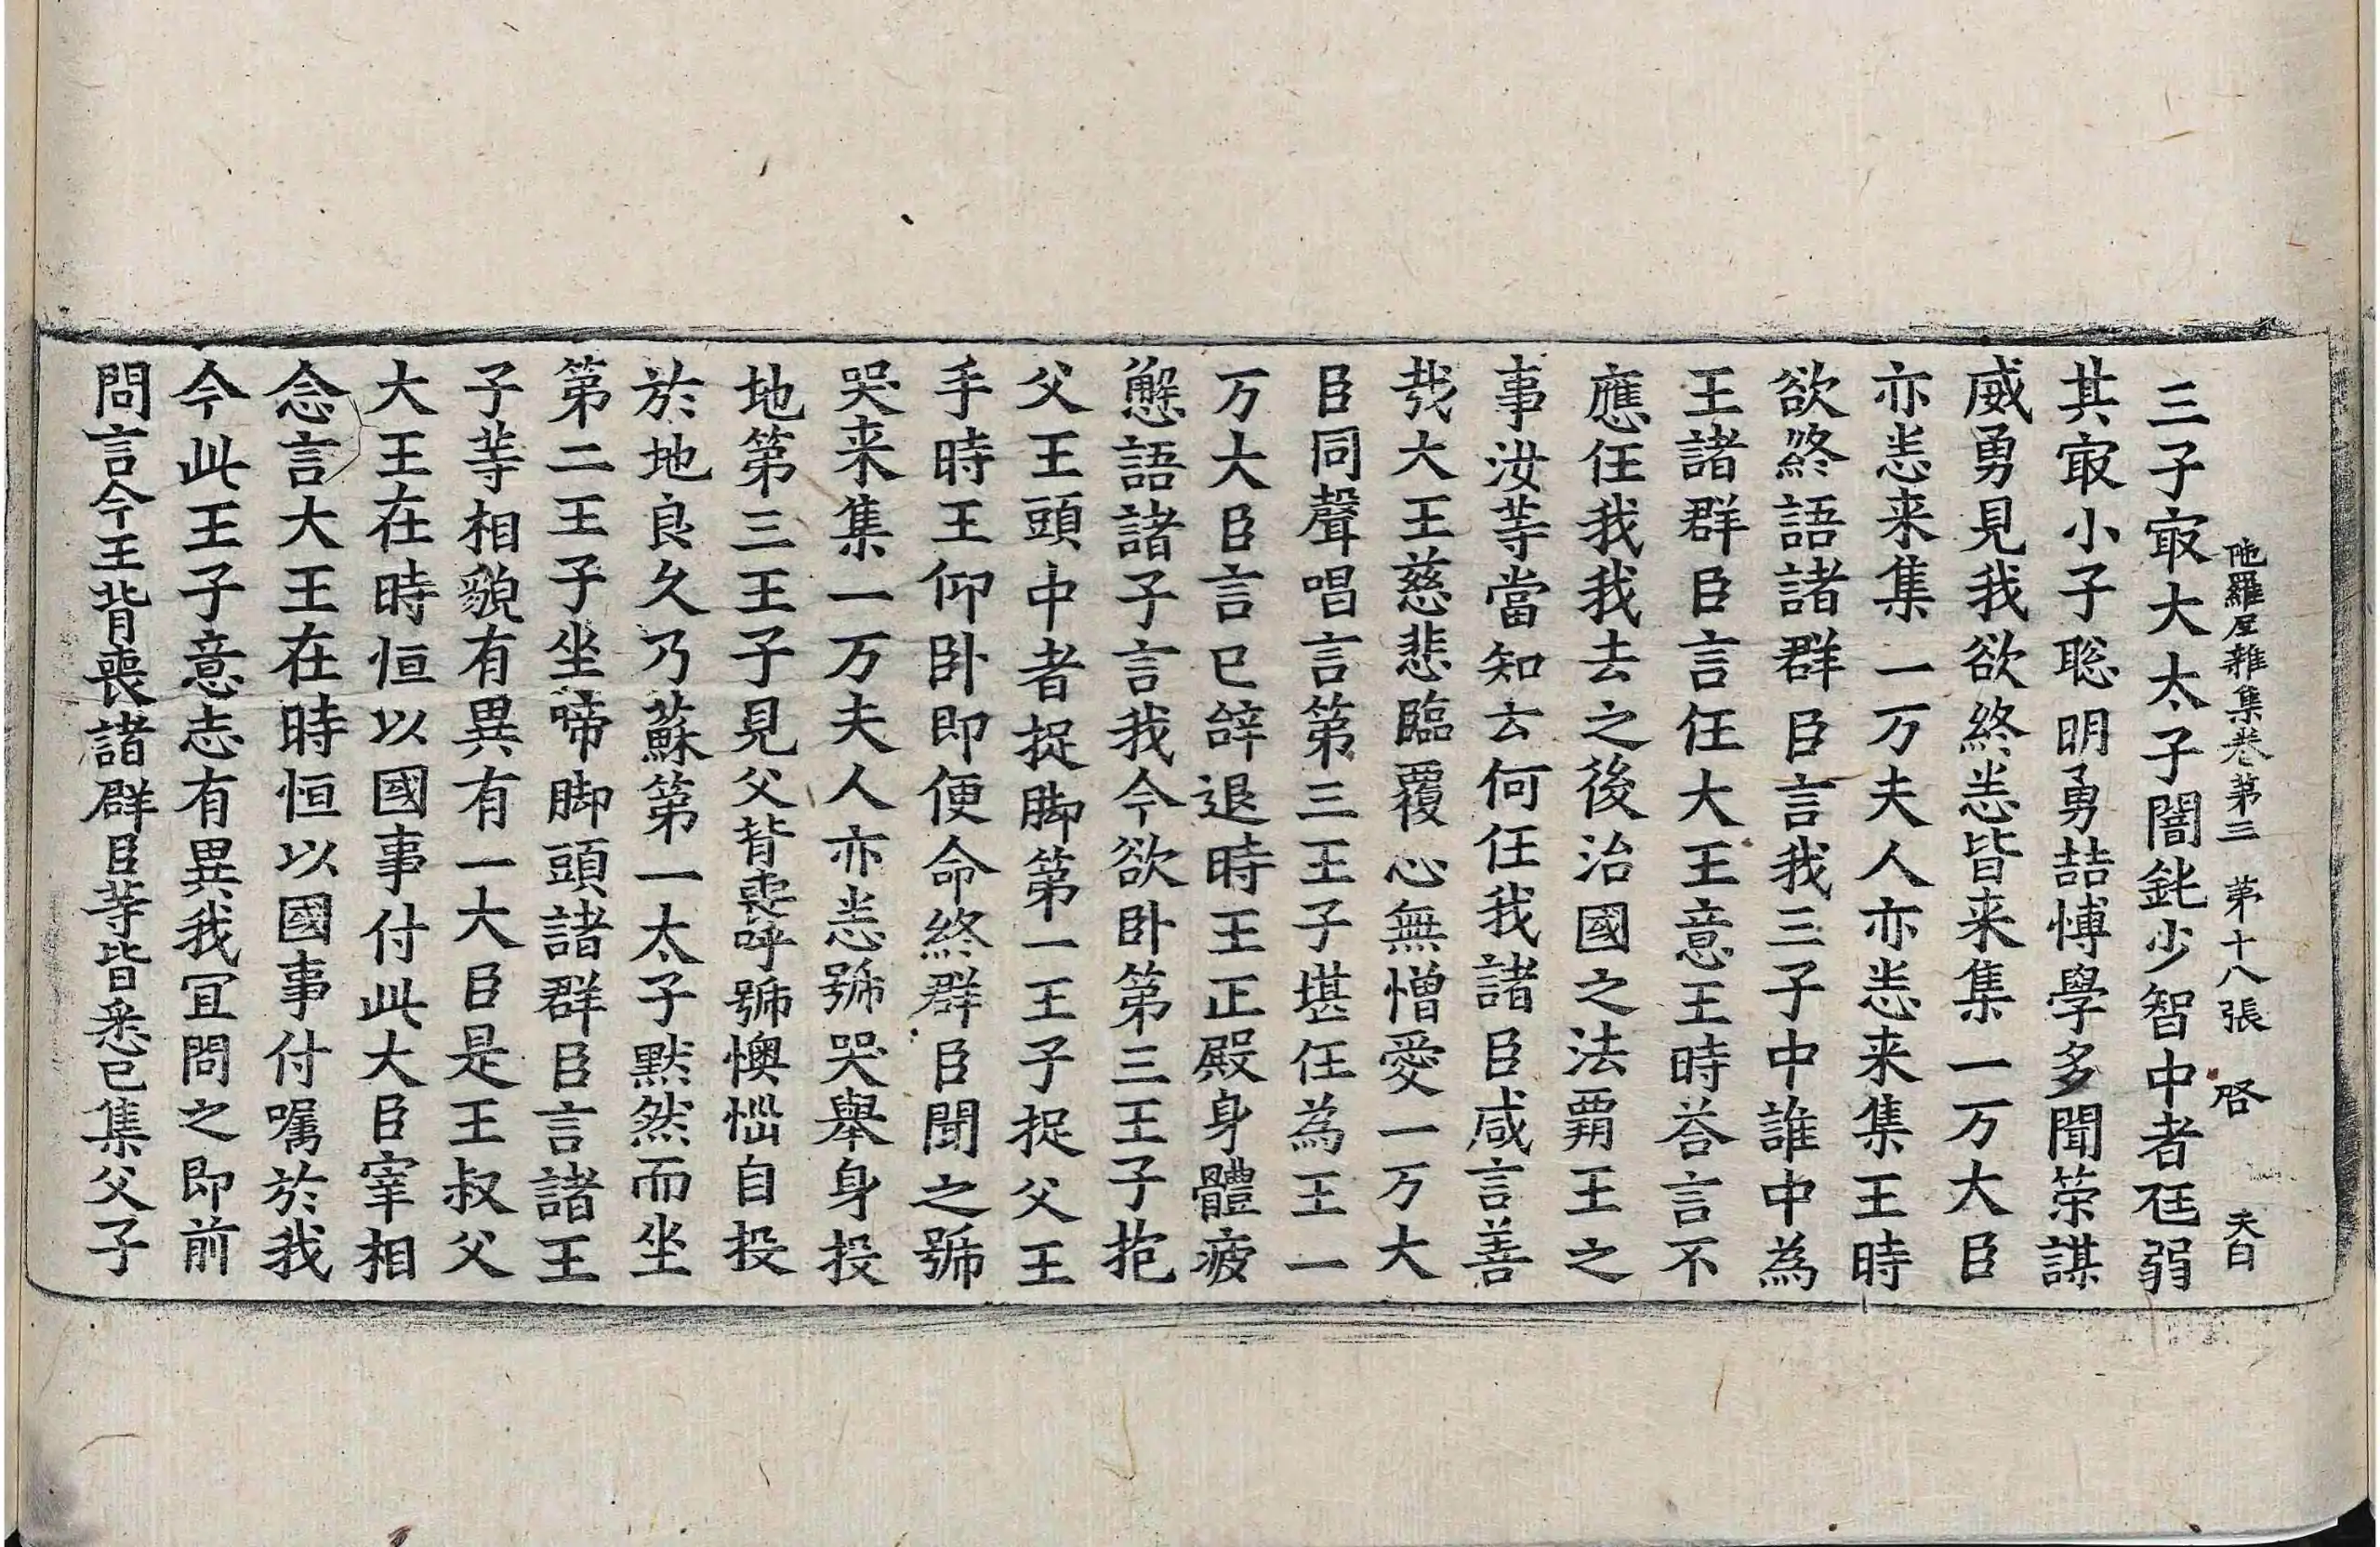 陁羅尼雜集卷第三 第十八張 啓
三子㝡大太子闇鈍少智中者尫弱
其㝡小子聡明勇喆博學多聞策謀
威勇見我欲終悉皆来集一万大臣
亦悉来集一万夫人亦悉来集王時
欲終語諸群臣言我三子中誰中為
王諸群臣言任大王意王時荅言不
應任我我去之後治國之法覇王之
事汝等當知云何任我諸臣咸言善
㢤大王慈悲臨覆心無憎愛一万大
臣同聲唱言第三王子堪任為王一
万大臣言已辝退時王正殿身體疲
懈語諸子言我今欲卧第三王子抱
父王頭中者捉脚第一王子捉父王
手時王仰卧即便命終群臣聞之號
哭来集一万夫人亦悉號哭舉身投
地第三王子見父背喪呼號懊惱自投
於地良久乃蘇第一太子黙然而坐
第二王子坐啼脚頭諸群臣言諸王
子等相貌有異有一大臣是王叔父
大王在時恒以國事付此大臣宰相
念言大王在時恒以國事付嘱於我
今此王子意志有異我冝問之即前
問言今王背喪諸群臣等皆悉已集父子